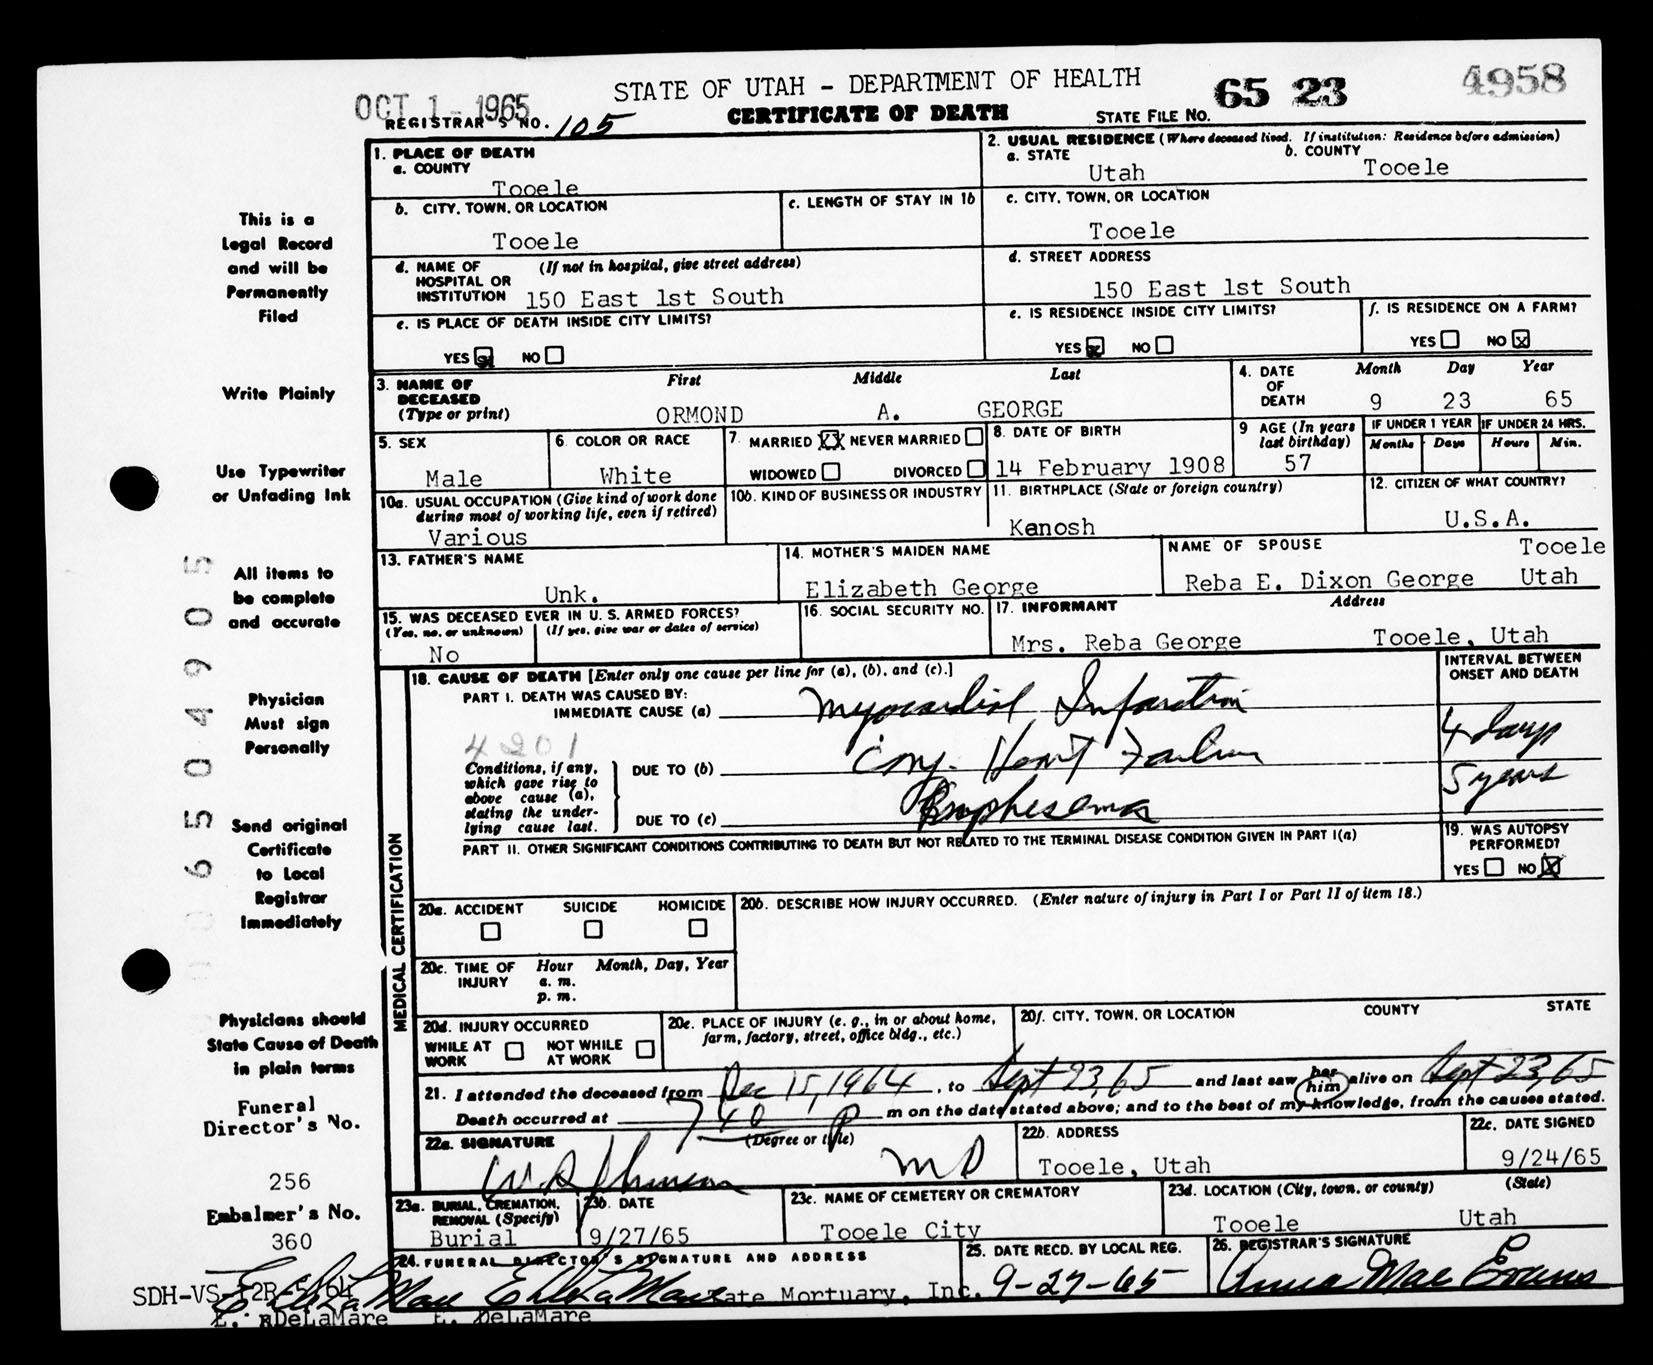 STATE OF UTAH - DEPARTMENT OF HEALTH
65 23
4958
OCT 1 - 1965
REGISTRAR'S NO. 105
CERTIFICATE OF DEATH
STATE FILE NO.
1. PLACE OF DEATH
a. COUNTY
Tooele
2. USUAL RESIDENCE (Where deceased lived. If institution: Residence before admission)
a. STATE
Utah
b. COUNTY
Tooele
b. CITY, TOWN, OR LOCATION
Tooele
c. LENGTH OF STAY IN 1b
c. CITY, TOWN, OR LOCATION
Tooele
d. NAME OF HOSPITAL OR INSTITUTION
(If not in hospital, give street address)
150 East 1st South
d. STREET ADDRESS
150 East 1st South
e. IS PLACE OF DEATH INSIDE CITY LIMITS?
YES X NO
e. IS RESIDENCE INSIDE CITY LIMITS?
YES X NO
f. IS RESIDENCE ON A FARM?
YES NO X
3. NAME OF DECEASED
(Type or print)
First Middle Last
ORMOND A. GEORGE
4. DATE OF DEATH
Month Day Year
9 23 65
5. SEX
Male
6. COLOR OR RACE
White
7. MARRIED XX NEVER MARRIED
WIDOWED DIVORCED
8. DATE OF BIRTH
14 February 1908
9 AGE (In years last birthday)
57
IF UNDER 1 YEAR
Months Days
IF UNDER 24 HRS.
Hours Min.
10a. USUAL OCCUPATION (Give kind of work done during most of working life, even if retired)
Various
10b. KIND OF BUSINESS OR INDUSTRY
11. BIRTHPLACE (State or foreign country)
Kanosh
12. CITIZEN OF WHAT COUNTRY?
U.S.A.
13. FATHER'S NAME
Unk.
14. MOTHER'S MAIDEN NAME
Elizabeth George
NAME OF SPOUSE
Reba E. Dixon George
Tooele
Utah
15. WAS DECEASED EVER IN U. S. ARMED FORCES?
(Yes, no, or unknown) (If yes, give war or dates of service)
No
16. SOCIAL SECURITY NO.
17. INFORMANT
Address
Mrs. Reba George Tooele, Utah
MEDICAL CERTIFICATION
18. CAUSE OF DEATH [Enter only one cause per line for (a), (b), and (c).]
INTERVAL BETWEEN ONSET AND DEATH
PART I. DEATH WAS CAUSED BY:
IMMEDIATE CAUSE (a) Myocardial Infarction
4201
4 days
Conditions, if any, which gave rise to above cause (a), stating the underlying cause last.
DUE TO (b) Cong. Heart Failure
5 years
DUE TO (c) Emphesema
PART II. OTHER SIGNIFICANT CONDITIONS CONTRIBUTING TO DEATH BUT NOT RELATED TO THE TERMINAL DISEASE CONDITION GIVEN IN PART I(a)
19. WAS AUTOPSY PERFORMED?
YES NO X
20a. ACCIDENT SUICIDE HOMICIDE
20b. DESCRIBE HOW INJURY OCCURRED. (Enter nature of injury in Part I or Part II of item 18.)
20c. TIME OF INJURY
Hour Month, Day, Year
a. m.
p. m.
20d. INJURY OCCURRED
WHILE AT WORK NOT WHILE AT WORK
20e. PLACE OF INJURY (e. g., in or about home, farm, factory, street, office bldg., etc.)
20f. CITY, TOWN, OR LOCATION COUNTY STATE
21. I attended the deceased from Dec 15, 1964, to Sept 23, 65 and last saw her him alive on Sept 23, 65
Death occurred at 7 40 P m on the date stated above; and to the best of my knowledge, from the causes stated.
22a. SIGNATURE
(Degree or title)
MD
22b. ADDRESS
Tooele, Utah
22c. DATE SIGNED
9/24/65
23a. BURIAL, CREMATION, REMOVAL (Specify)
Burial
23b. DATE
9/27/65
23c. NAME OF CEMETERY OR CREMATORY
Tooele City
23d. LOCATION (City, town, or county) (State)
Tooele Utah
24. FUNERAL DIRECTOR'S SIGNATURE AND ADDRESS
Mortuary, Inc.
25. DATE RECD. BY LOCAL REG.
9-27-65
26. REGISTRAR'S SIGNATURE
Anna Mae Evans
E. DeLaMare E. DeLaMare
This is a
Legal Record
and will be
Permanently
Filed
Write Plainly
Use Typewriter
or Unfading Ink
All items to
be complete
and accurate
Physician
Must sign
Personally
Send original
Certificate
to Local
Registrar
Immediately
Physicians should
State Cause of Death
in plain terms
Funeral
Director's No.
256
Embalmer's No.
360
SDH-VS